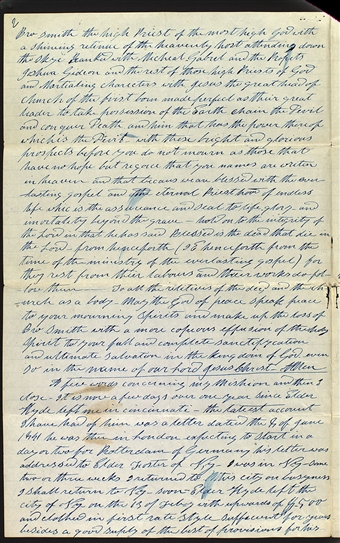 2
Bro Smith the high Priest of the most high God with
a shining retinue of the heavenly host attending down
the Skye Ranked with Micheal Gabriel and the Prophets
Joshua Gideon and the rest of those high Priests of God
and Martialing charecters with Jesus the great head of
Church of the first born made perfect as their great
leader to take possession of the Earth chain the Devil
and conquer Death and him that has the power thereof
which is the Devil with these bright and glorious
prospects before you do not mourn as those that
have no hope but rejoice that your names are writen
in heaven and that because were blessed with the ever
lasting gospel and the eternal Priesthood of endless
life which is the assureance and seal to life glory and
imortality beyond the grave - hold on to the integrity of
the Lord in that he has said Blessed is the dead that die in
the Lord from henceforth (IS henceforth from the
time of the ministry of the everlasting gospel) for
they rest from thier labours and thier works do fol
low them To all the reletives of the dec and the ch
urch as a body May the God of peace speak peace
to your mourning spirits and make up the loss of
Bro Smith with a more copious effusion of the holy
Spirit to your full and complete sanctifycation
and ultimate salvation in the kingdom of God even
so in the name of our Lord Jesus Christ Amen
A few words concerning my Mishion and then I
close - It is now a few days over one year since Elder
Hyde left me in cincinnate - the latest account
I have had of him was a letter dated the of June
1841 he was then in London expecting to start in a
day or two for Rotterdam of Germany his letter was
addressed to Elder Foster of NY I was in NY some
two or three weeks I returned to this city on buisness
I shall return to NY soon Elder Hyde left the
city of NY on the 13 of Feby with upwards of
and clothed in first rate style sufficient for years
besides a good supply of the best of provisions for his